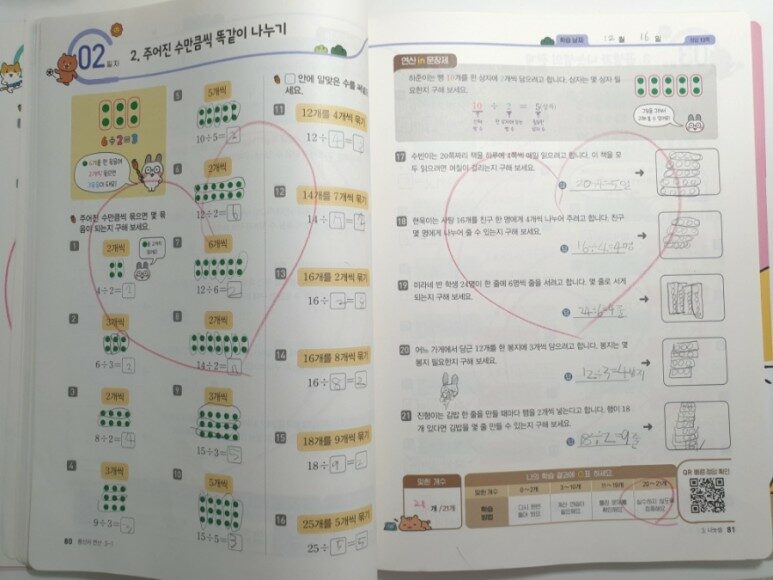 02 일차
2. 주어진 수만큼씩 똑같이 나누기
6÷2=3
6개를 한 묶음에
2개씩 묶으면
3묶음이 돼요!
주어진 수만큼씩 묶으면 몇 묶
음이 되는지 구해 보세요.
1
2개씩
4÷2=2
2
3개씩
6÷3=2
3
2개씩
8÷2=4
4
3개씩
9÷3=3
5
5개씩
10÷5=2
6
2개씩
12÷2=6
7
6개씩
12÷6=2
8
2개씩
14÷2=
9
3개씩
15÷3=5
10
5개씩
15÷5=3
안에 알맞은 수를 써
세요.
11
12개를 4개씩 묶기
12÷
12
14개를 7개씩 묶기
14÷
13
16개를 2개씩 묶기
16÷
14
16개를 8개씩 묶기
16÷8=2
15
18개를 9개씩 묶기
18÷9=2
16
25개를 5개씩 묶기
25÷5=5
80 3-1
학습 날짜 12월 16일
연산 in 문장제
하준이는 빵 10개를 한 상자에 2개씩 담으려고 합니다. 상자는 몇 상자 필
요한지 구해 보세요.
10÷2=5(상자)
17
수빈이는 20쪽짜리 책을 하루에 4쪽씩 매일 읽으려고 합니다. 이 책을 모
두 읽으려면 며칠이 걸리는지 구해 보세요.
답 20÷4=5일
18
현욱이는 사탕 16개를 친구 한 명에게 4개씩 나누어 주려고 합니다. 친구
몇 명에게 나누어 줄 수 있는지 구해 보세요.
답 16÷4=4명
19
미라네 반 학생 24명이 한 줄에 6명씩 줄을 서려고 합니다. 몇 줄로 서게
되는지 구해 보세요.
답 24÷6=4줄
20
어느 가게에서 당근 12개를 한 봉지에 3개씩 담으려고 합니다. 봉지는 몇
봉지 필요한지 구해 보세요.
답 12÷3=4봉지
21
진형이는 김밥 한 줄을 만들 때마다 햄을 2개씩 넣는다고 합니다. 햄이 18
개 있다면 김밥을 몇 줄 만들 수 있는지 구해 보세요.
답 18÷2=9줄
맞힌 개수
개/21개
나의 학습 결과에 ○표 하세요.
맞힌 개수 0~2개 3~10개 11~19개 20~21개
학습
방법
QR 빠른정답 확인
3. 나눗셈 81